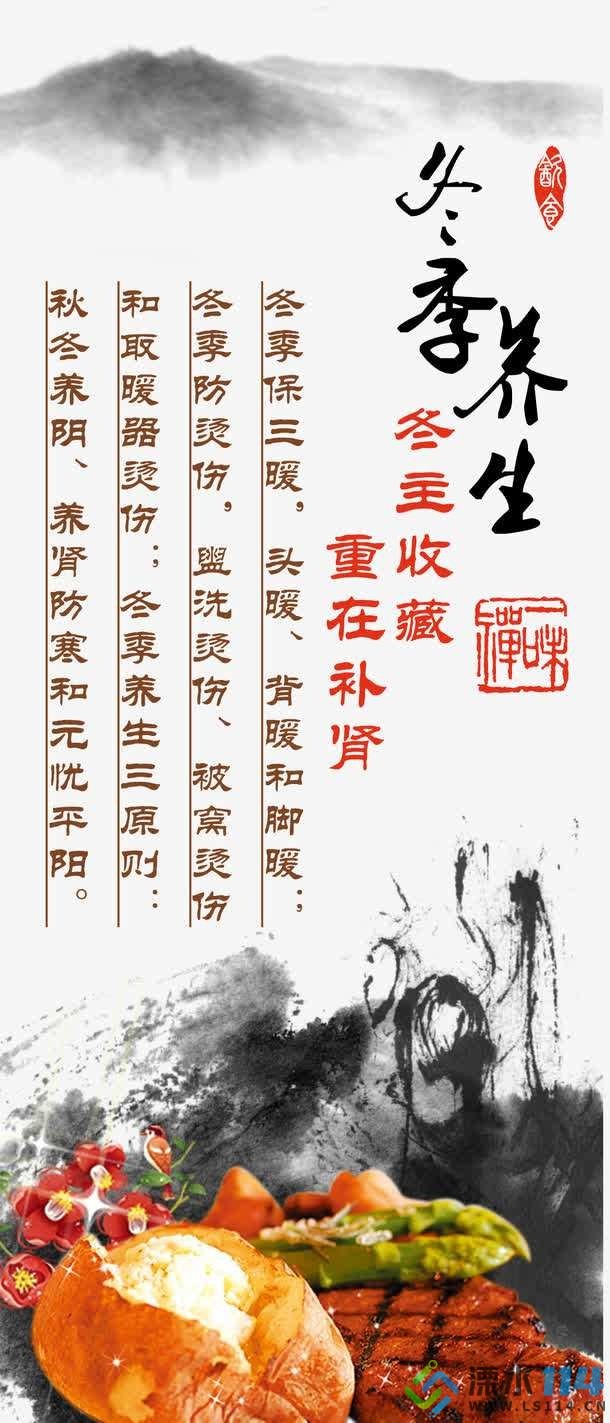 飲食
冬季养生
一味禪
冬主收藏
重在补肾
冬季保三暖，头暖、背暖和脚暖；
冬季防烫伤，盥洗烫伤、被窝烫伤
和取暖器烫伤；冬季养生三原则：
秋冬养阴、养肾防寒和元忧平阳。
溧水114
WWW.LS114.CN